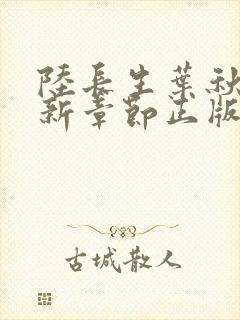 陸長生葉秋
新章節正版
古城散人